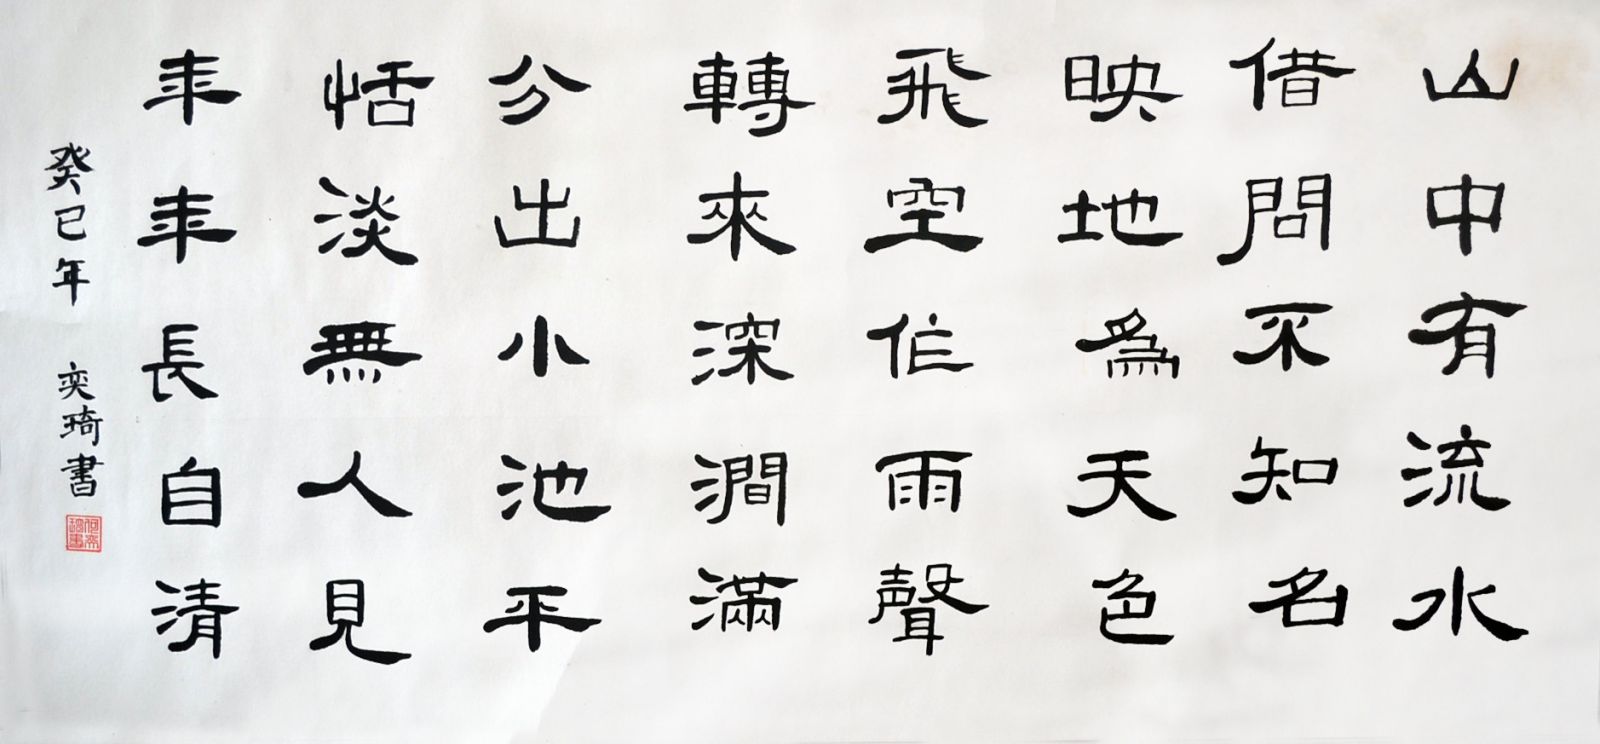 山中有流水
借問不知名
映地為天色
飛空作雨聲
轉來深澗滿
分出小池平
恬淡無人見
年年長自清
癸巳年 奕琦書